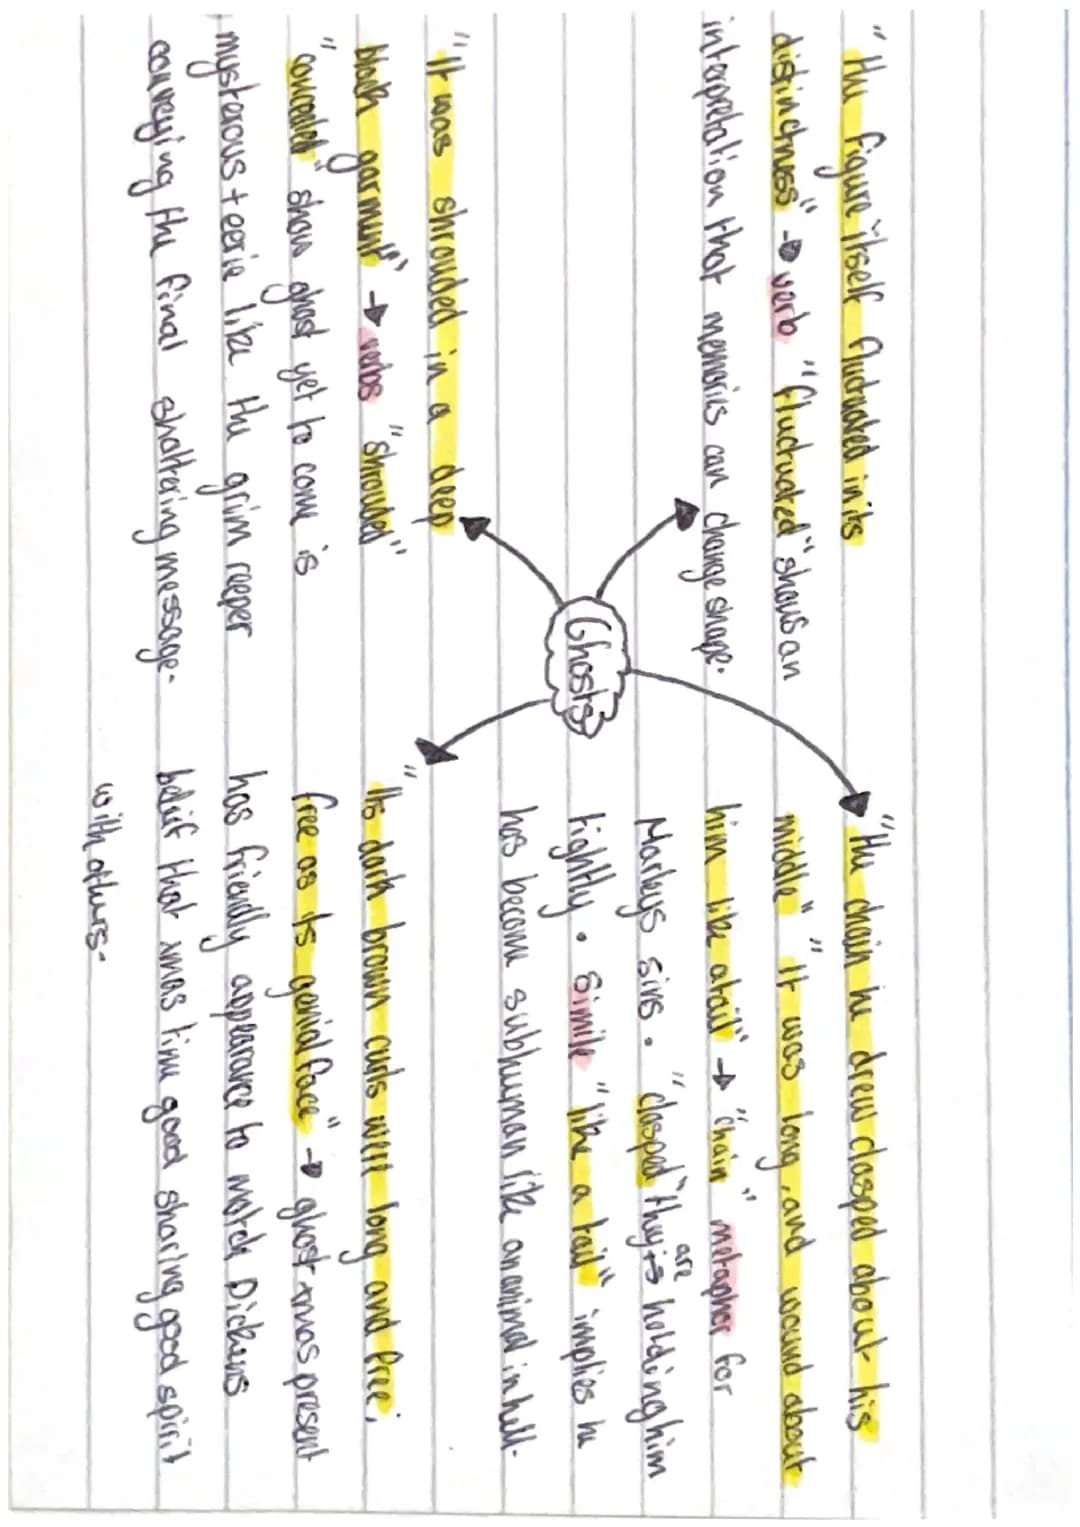 "The figure itself fluctuated in its
distinctness" → verb "fluctuated" shows an
interpretation that memories can change shape.
"The chain he drew clasped about his
middle" "It was long, and wound about
him like a tail" → "chain" metapher for
Marleys sins. "clasped" they is holding him
are
tightly. Simile "like a tail" implies he
has become subhuman like an animal in hell.
Ghosts
"It was shrouded in a deep
black garment" → verbs "shrouded"
"concealed" show ghost yet to come is
mysterous + eerie like the grim reeper
conveying the final shattering message.
"Its dark brown curls were long and free;
free as its genial face" → ghost xmas present
has friendly appearance to match Dickens
belief that xmas time good sharing good spirit
with others.